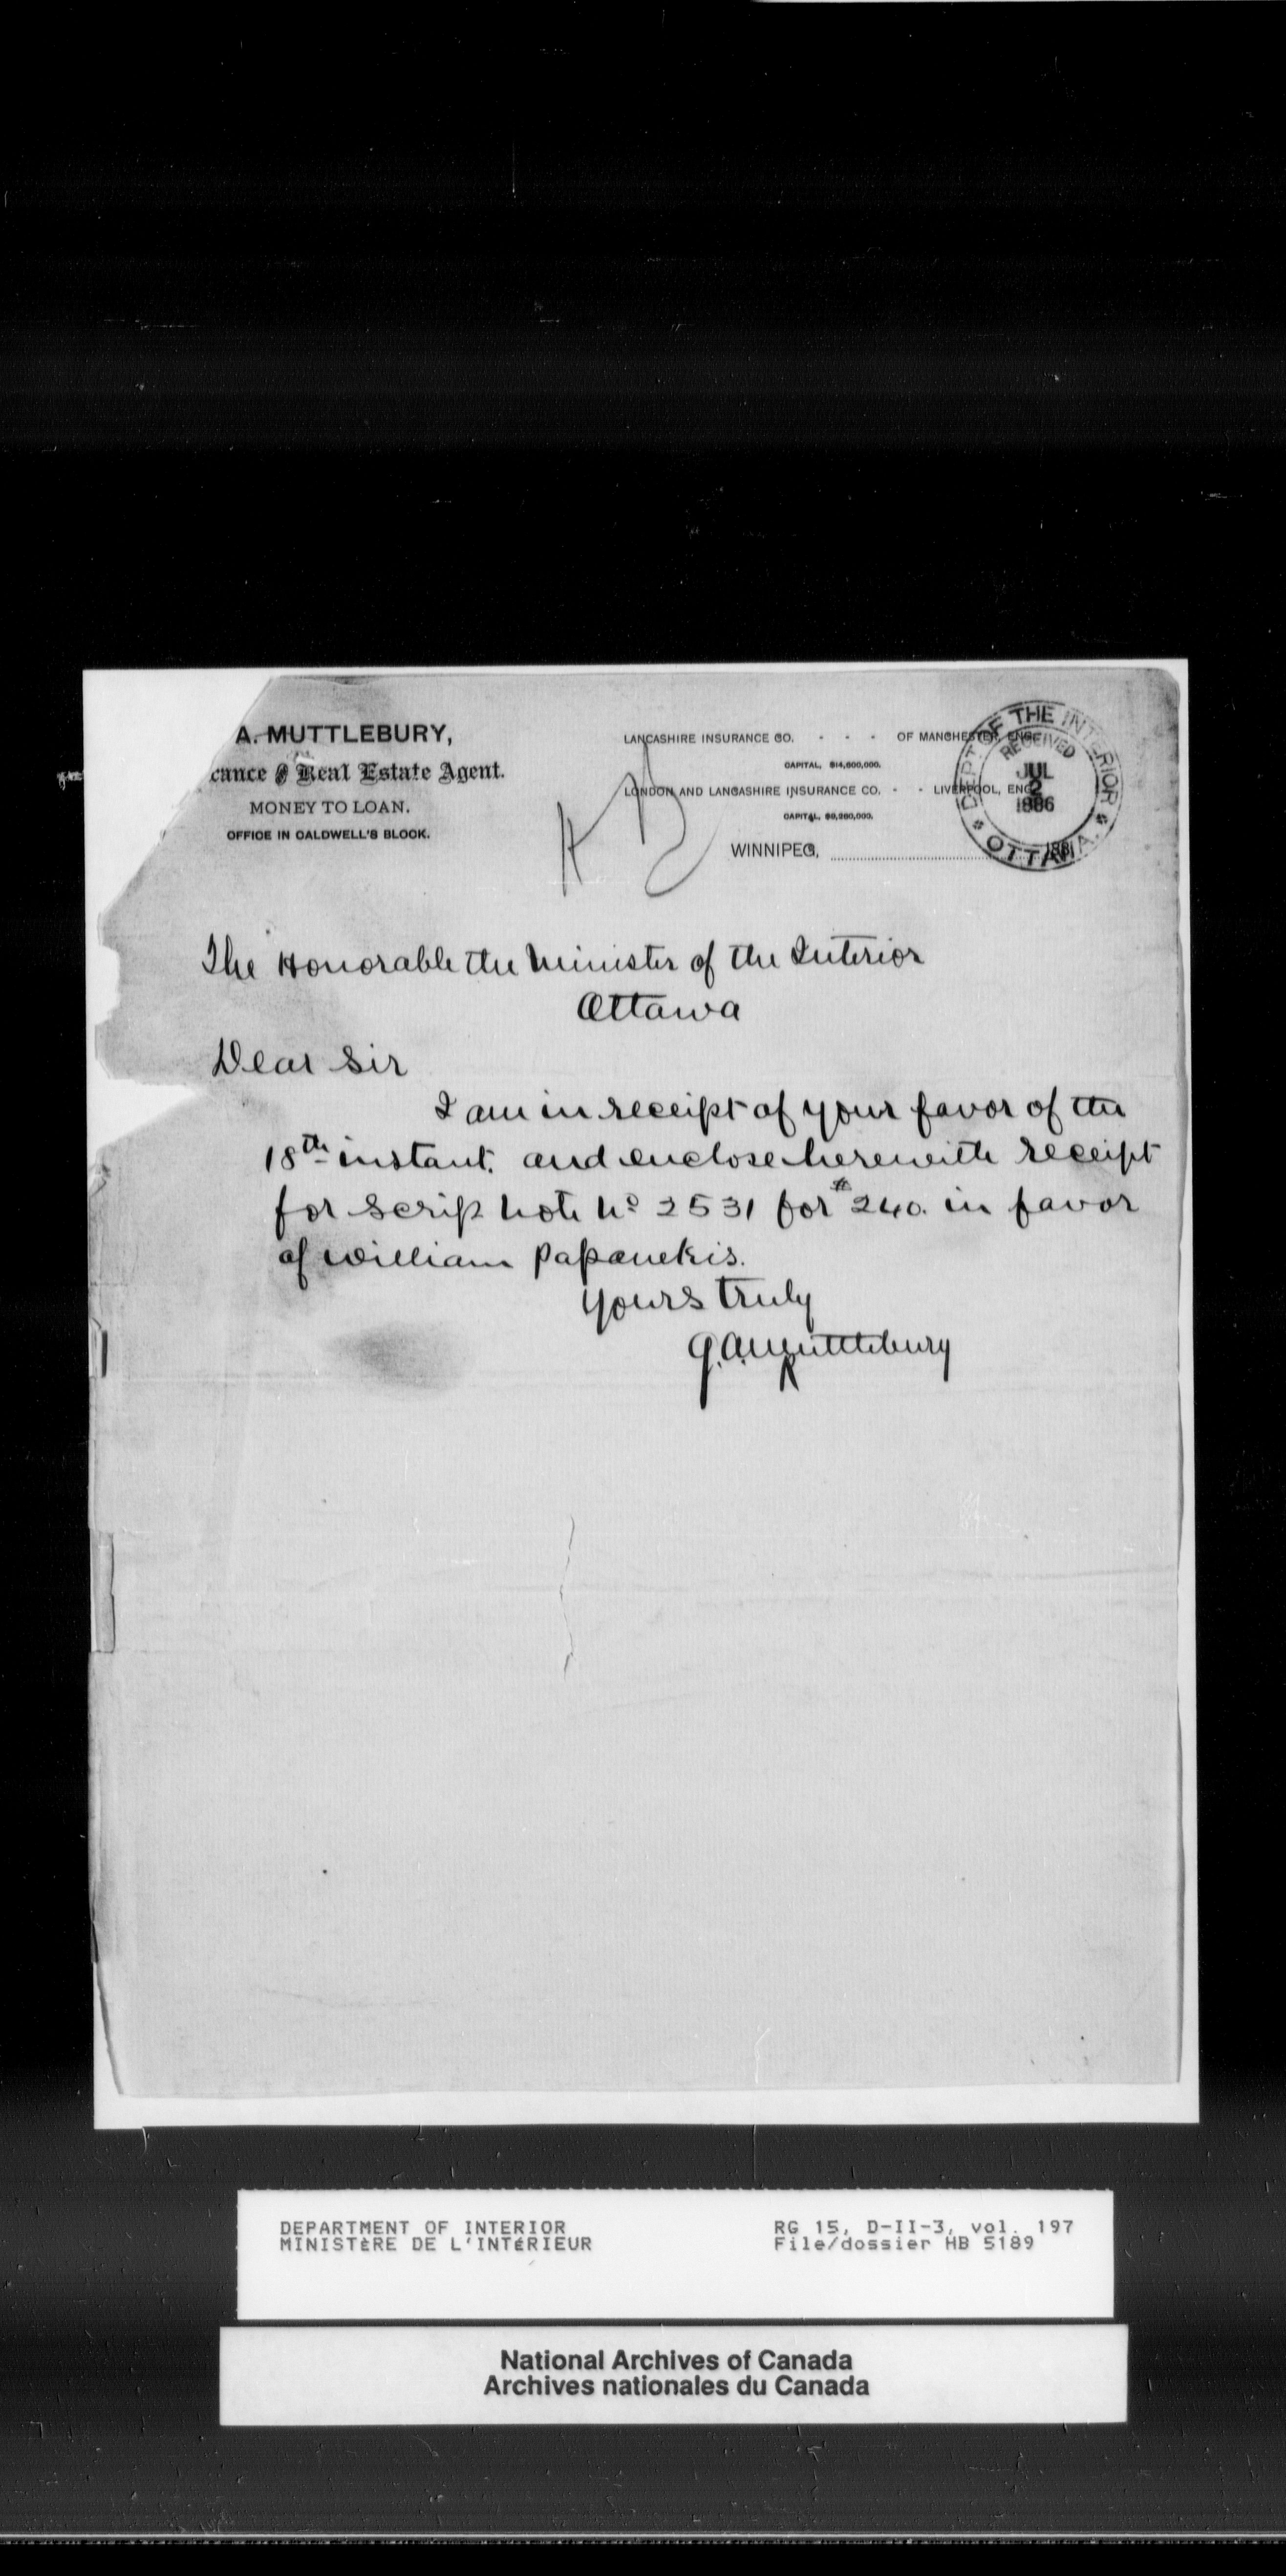 A. MUTTLEBURY,
Real Estate Agent.
MONEY TO LOAN.
OFFICE IN CALDWELL'S BLOCK.
LANCASHIRE INSURANCE CO. - - - OF MANCHESTER, ENG.
CAPITAL, $14,600,000.
LONDON AND LANCASHIRE INSURANCE CO. - - LIVERPOOL, ENG.
CAPITAL,
WINNIPEG, 188
DEPT OF THE INTERIOR
RECEIVED
JUL
2
1886
OTTAWA.
HB
The Honorable the Minister of the Interior
Ottawa
Dear Sir
I am in receipt of your favor of the
18th instant. and enclose herewith receipt
for Scrip note No 2531 for $240. in favor
of William Papanekis.
Yours truly
G. A. Muttlebury
DEPARTMENT OF INTERIOR
MINISTÈRE DE L'INTÉRIEUR
RG 15, D-II-3, vol. 197
File/dossier HB 5189
National Archives of Canada
Archives nationales du Canada